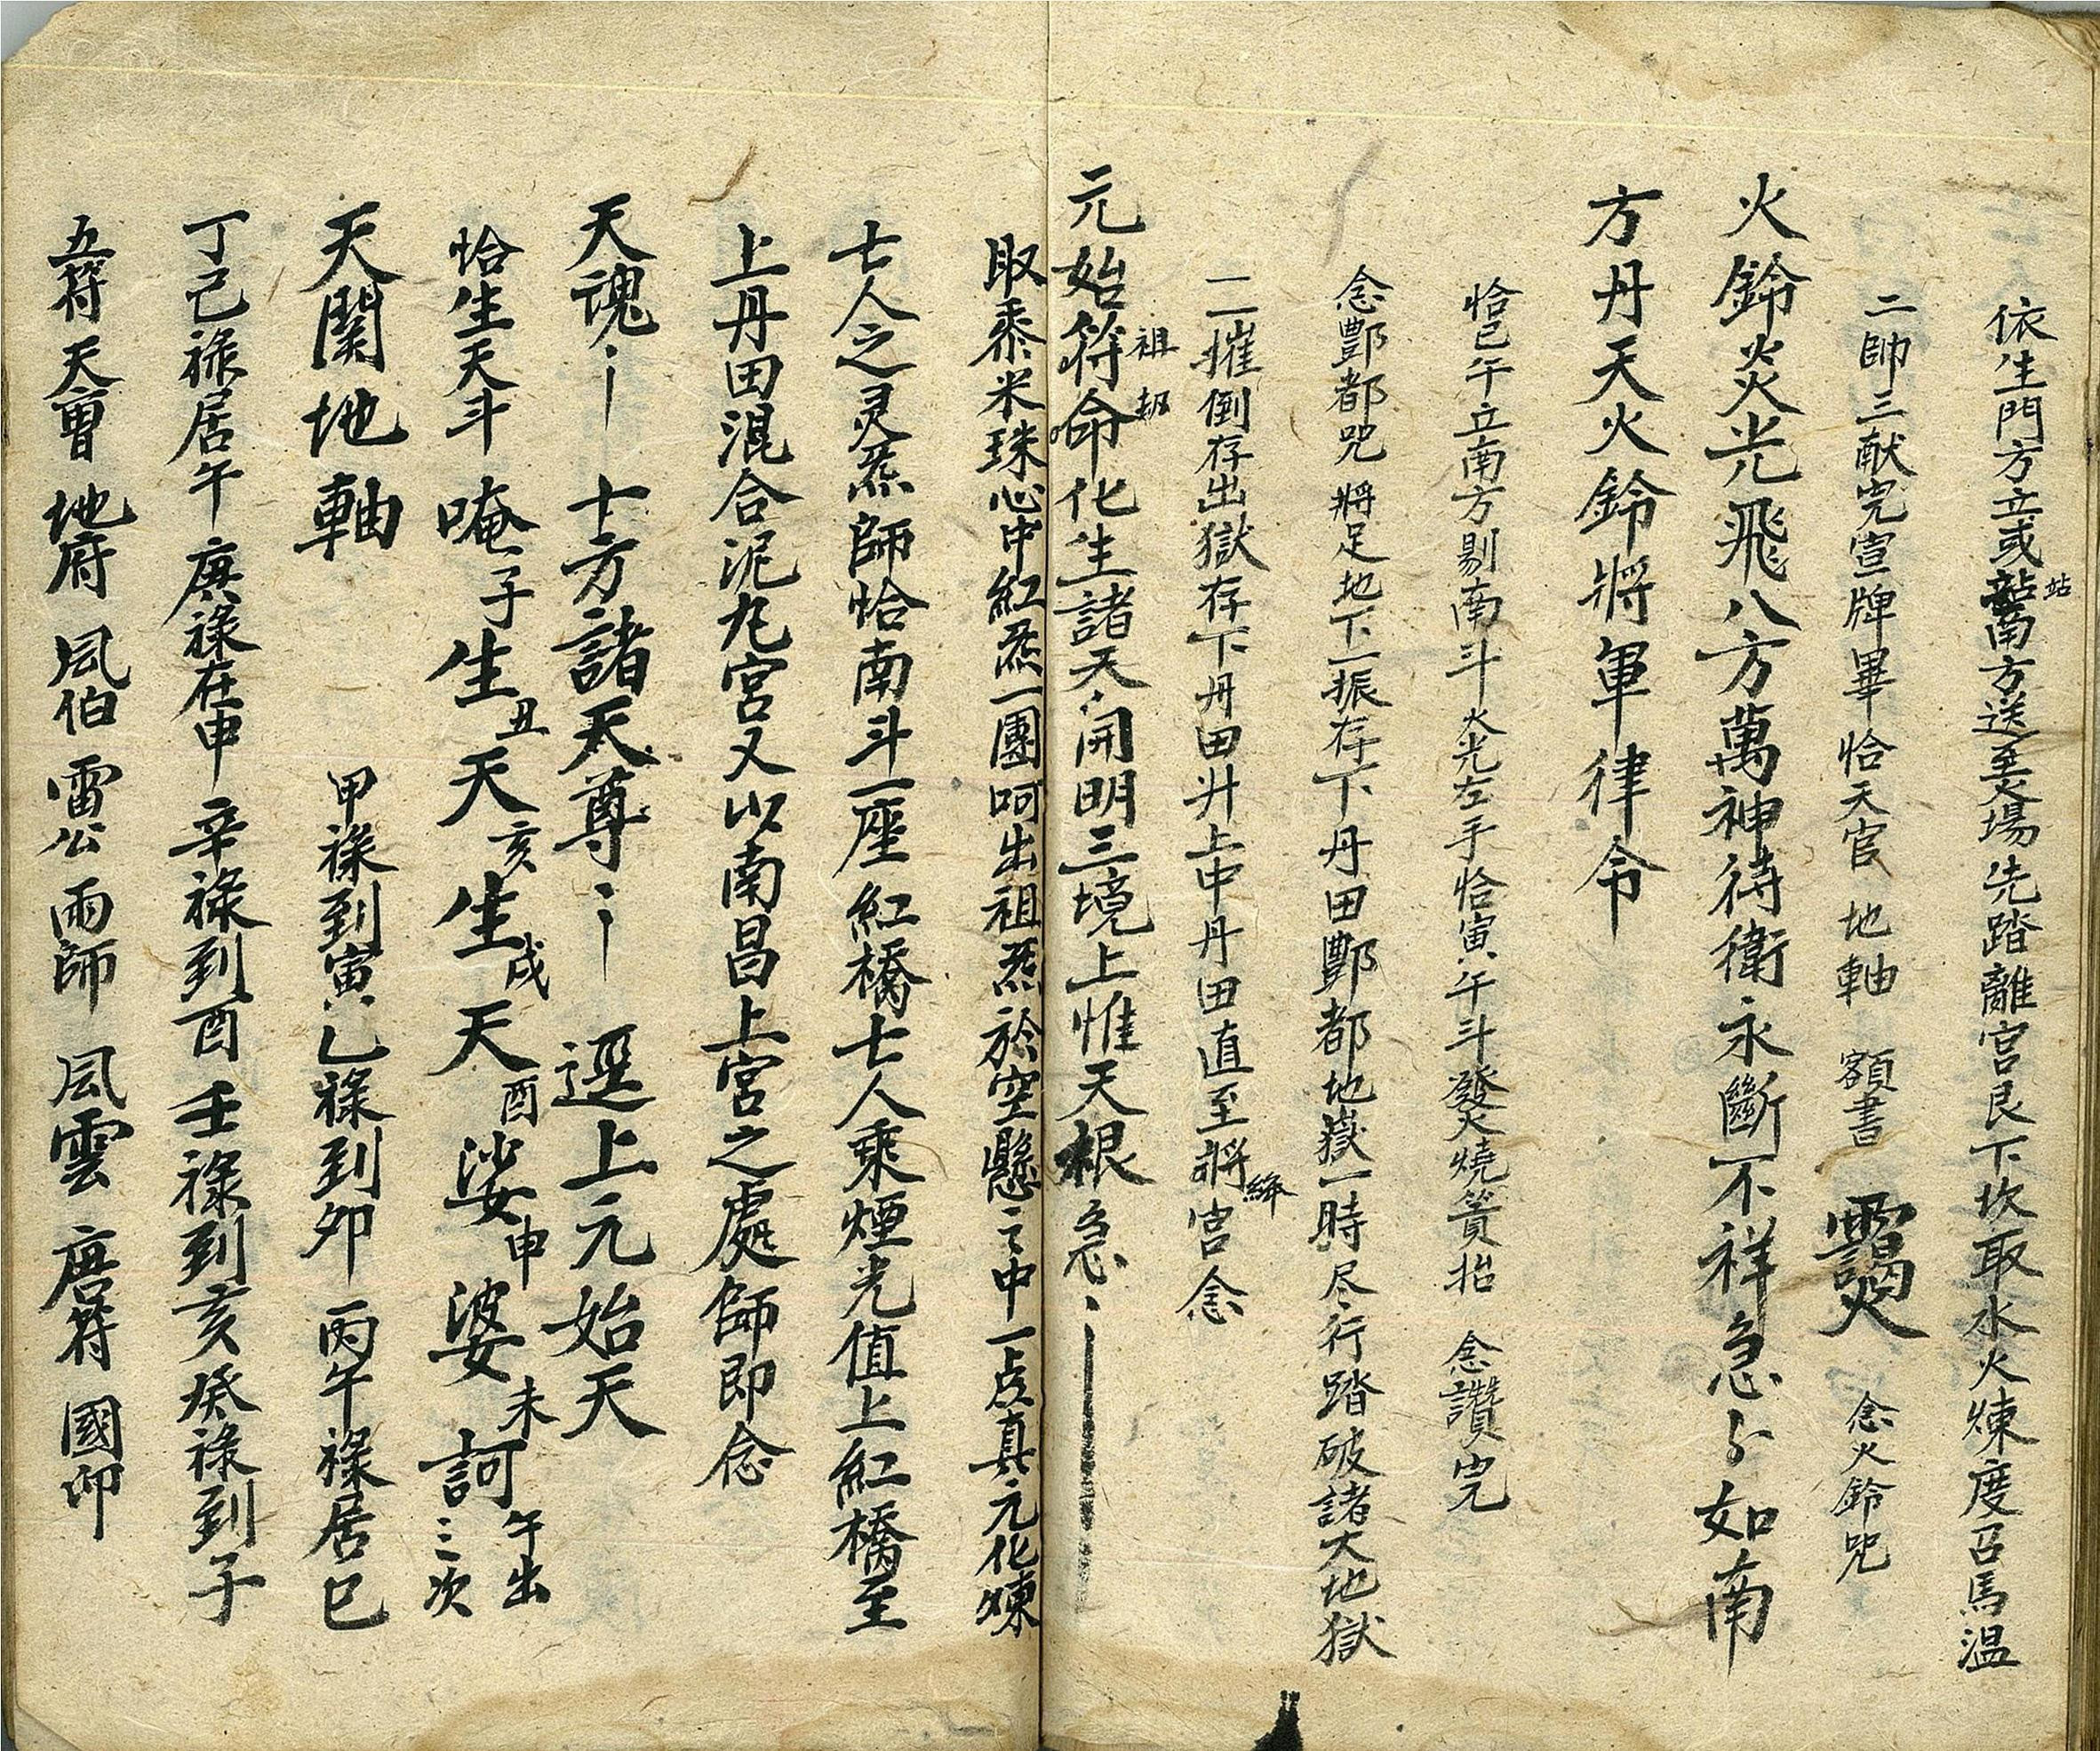 依生門方立或站南方送至火場先踏離宮艮下坎取水火煉度召馬溫
站
二帥三献完宣牌畢恰天官 地軸 額書 念火鈴咒
火鈴炎光飛八方萬神待衛永斷不祥急〻如南
方丹天火鈴將軍律令
恰巳午立南方剔南斗火光左手恰寅午斗發火燒簣抬 念讚完
念酆都咒將足地下一振存下丹田酆都地嶽一時尽行踏破諸大地獄
二摧倒存出獄存下丹田升上中丹田直至將宮念
絳
元始符命化生諸天〻開明三境上惟天根急〻
祖劫
取黍米珠心中紅炁一團呵出祖炁於空懸〻之中一点真元化煉
七人之灵炁師恰南斗一座紅橋七人乘煙光值上紅橋至
上丹田混合泥丸宮又以南昌上宮之處師即念
天魂〻 十方諸天尊〻 逕上元始天
恰生天斗唵子生丑天亥生戌天酉娑申婆未訶午出三次
天関地軸 甲祿到寅乙祿到卯 丙午祿居巳
丁己祿居午 庚祿在申 辛祿到酉 壬祿到亥癸祿到子
五符 天曹 地府 風伯 雷公 雨師 風雲 唐符 國印